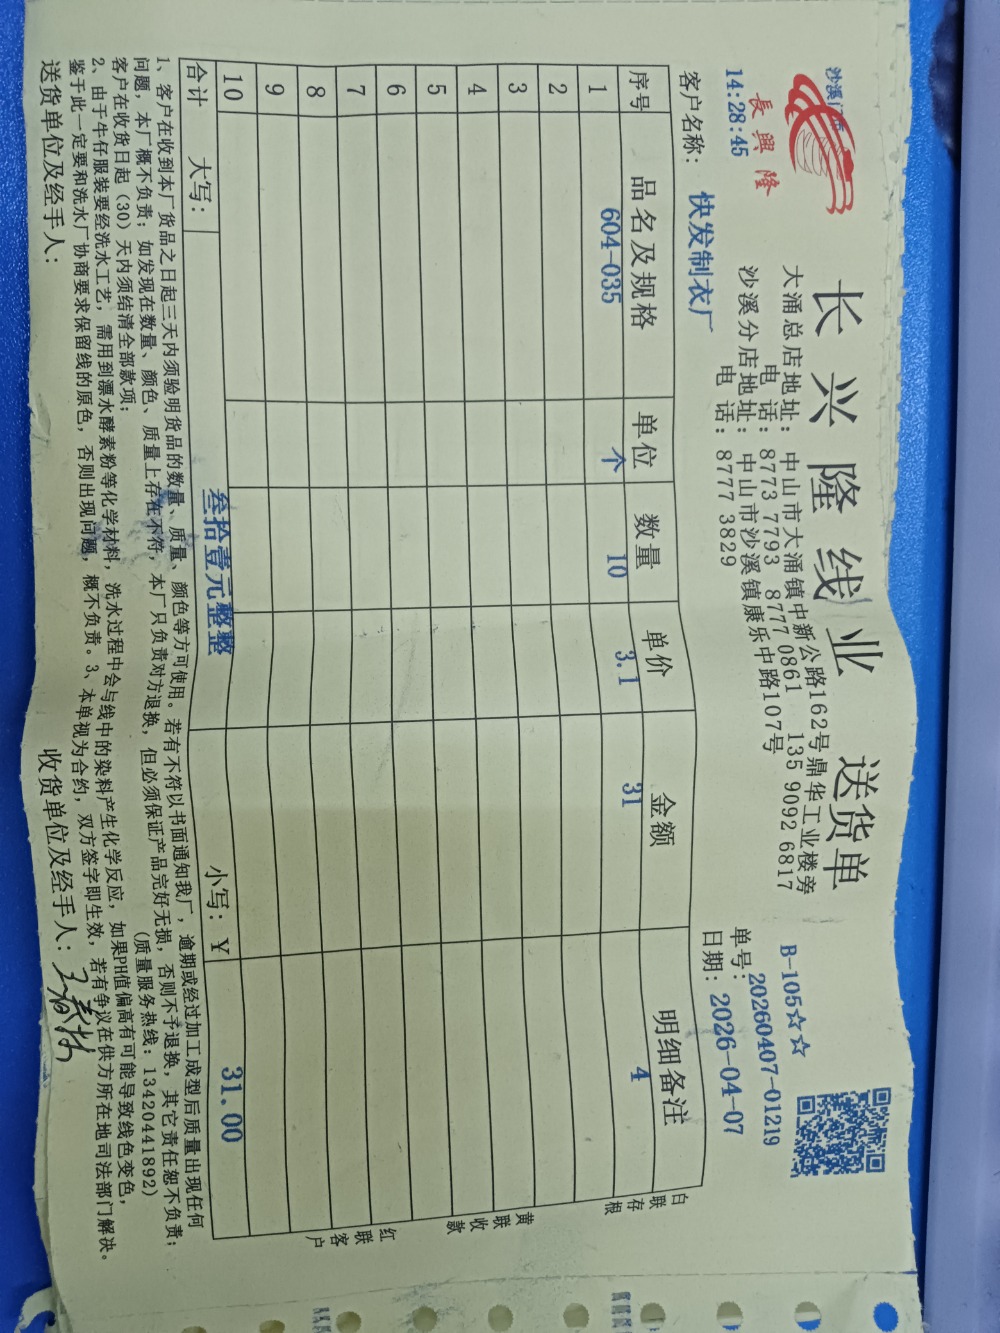 長興隆
14:28:45
长兴隆线业 送货单
大涌总店地址: 中山市大涌镇中新公路162号鼎华工业楼旁
电 话: 8773 7793 8777 0861 135 9092 6817
沙溪分店地址: 中山市沙溪镇康乐中路107号
电 话: 8777 3829
B-105☆☆
单号: 20260407-01219
日期: 2026-04-07
客户名称: 快发制衣厂
序号 品名及规格 单位 数量 单价 金额 明细备注
1 604-035 个 10 3.1 31 4
2
3
4
5
6
7
8
9
10
合计 大写: 叁拾壹元整整 小写: ¥ 31.00
白联存根
黄联收款
红联客户
1、客户在收到本厂货品之日起三天内须验明货品的数量、质量、颜色等方可使用。若有不符以书面通知我厂，逾期或经过加工成型后质量出现任何
问题，本厂概不负责；如发现在数量、颜色、质量上存在不符，本厂只负责对方退换，但必须保证产品完好无损，否则不予退换，其它责任恕不负责；
客户在收货日起（30）天内须结清全部款项； (质量服务热线: 13420441892)
2、由于牛仔服装要经洗水工艺，需用到漂水酵素粉等化学材料，洗水过程中会与线中的染料产生化学反应，如果PH值偏高有可能导致线色变色，
鉴于此一定要和洗水厂协商要求保留线的原色，否则出现问题，概不负责。3、本单视为合约，双方签字即生效，若有争议在供方所在地司法部门解决。
送货单位及经手人: 收货单位及经手人: